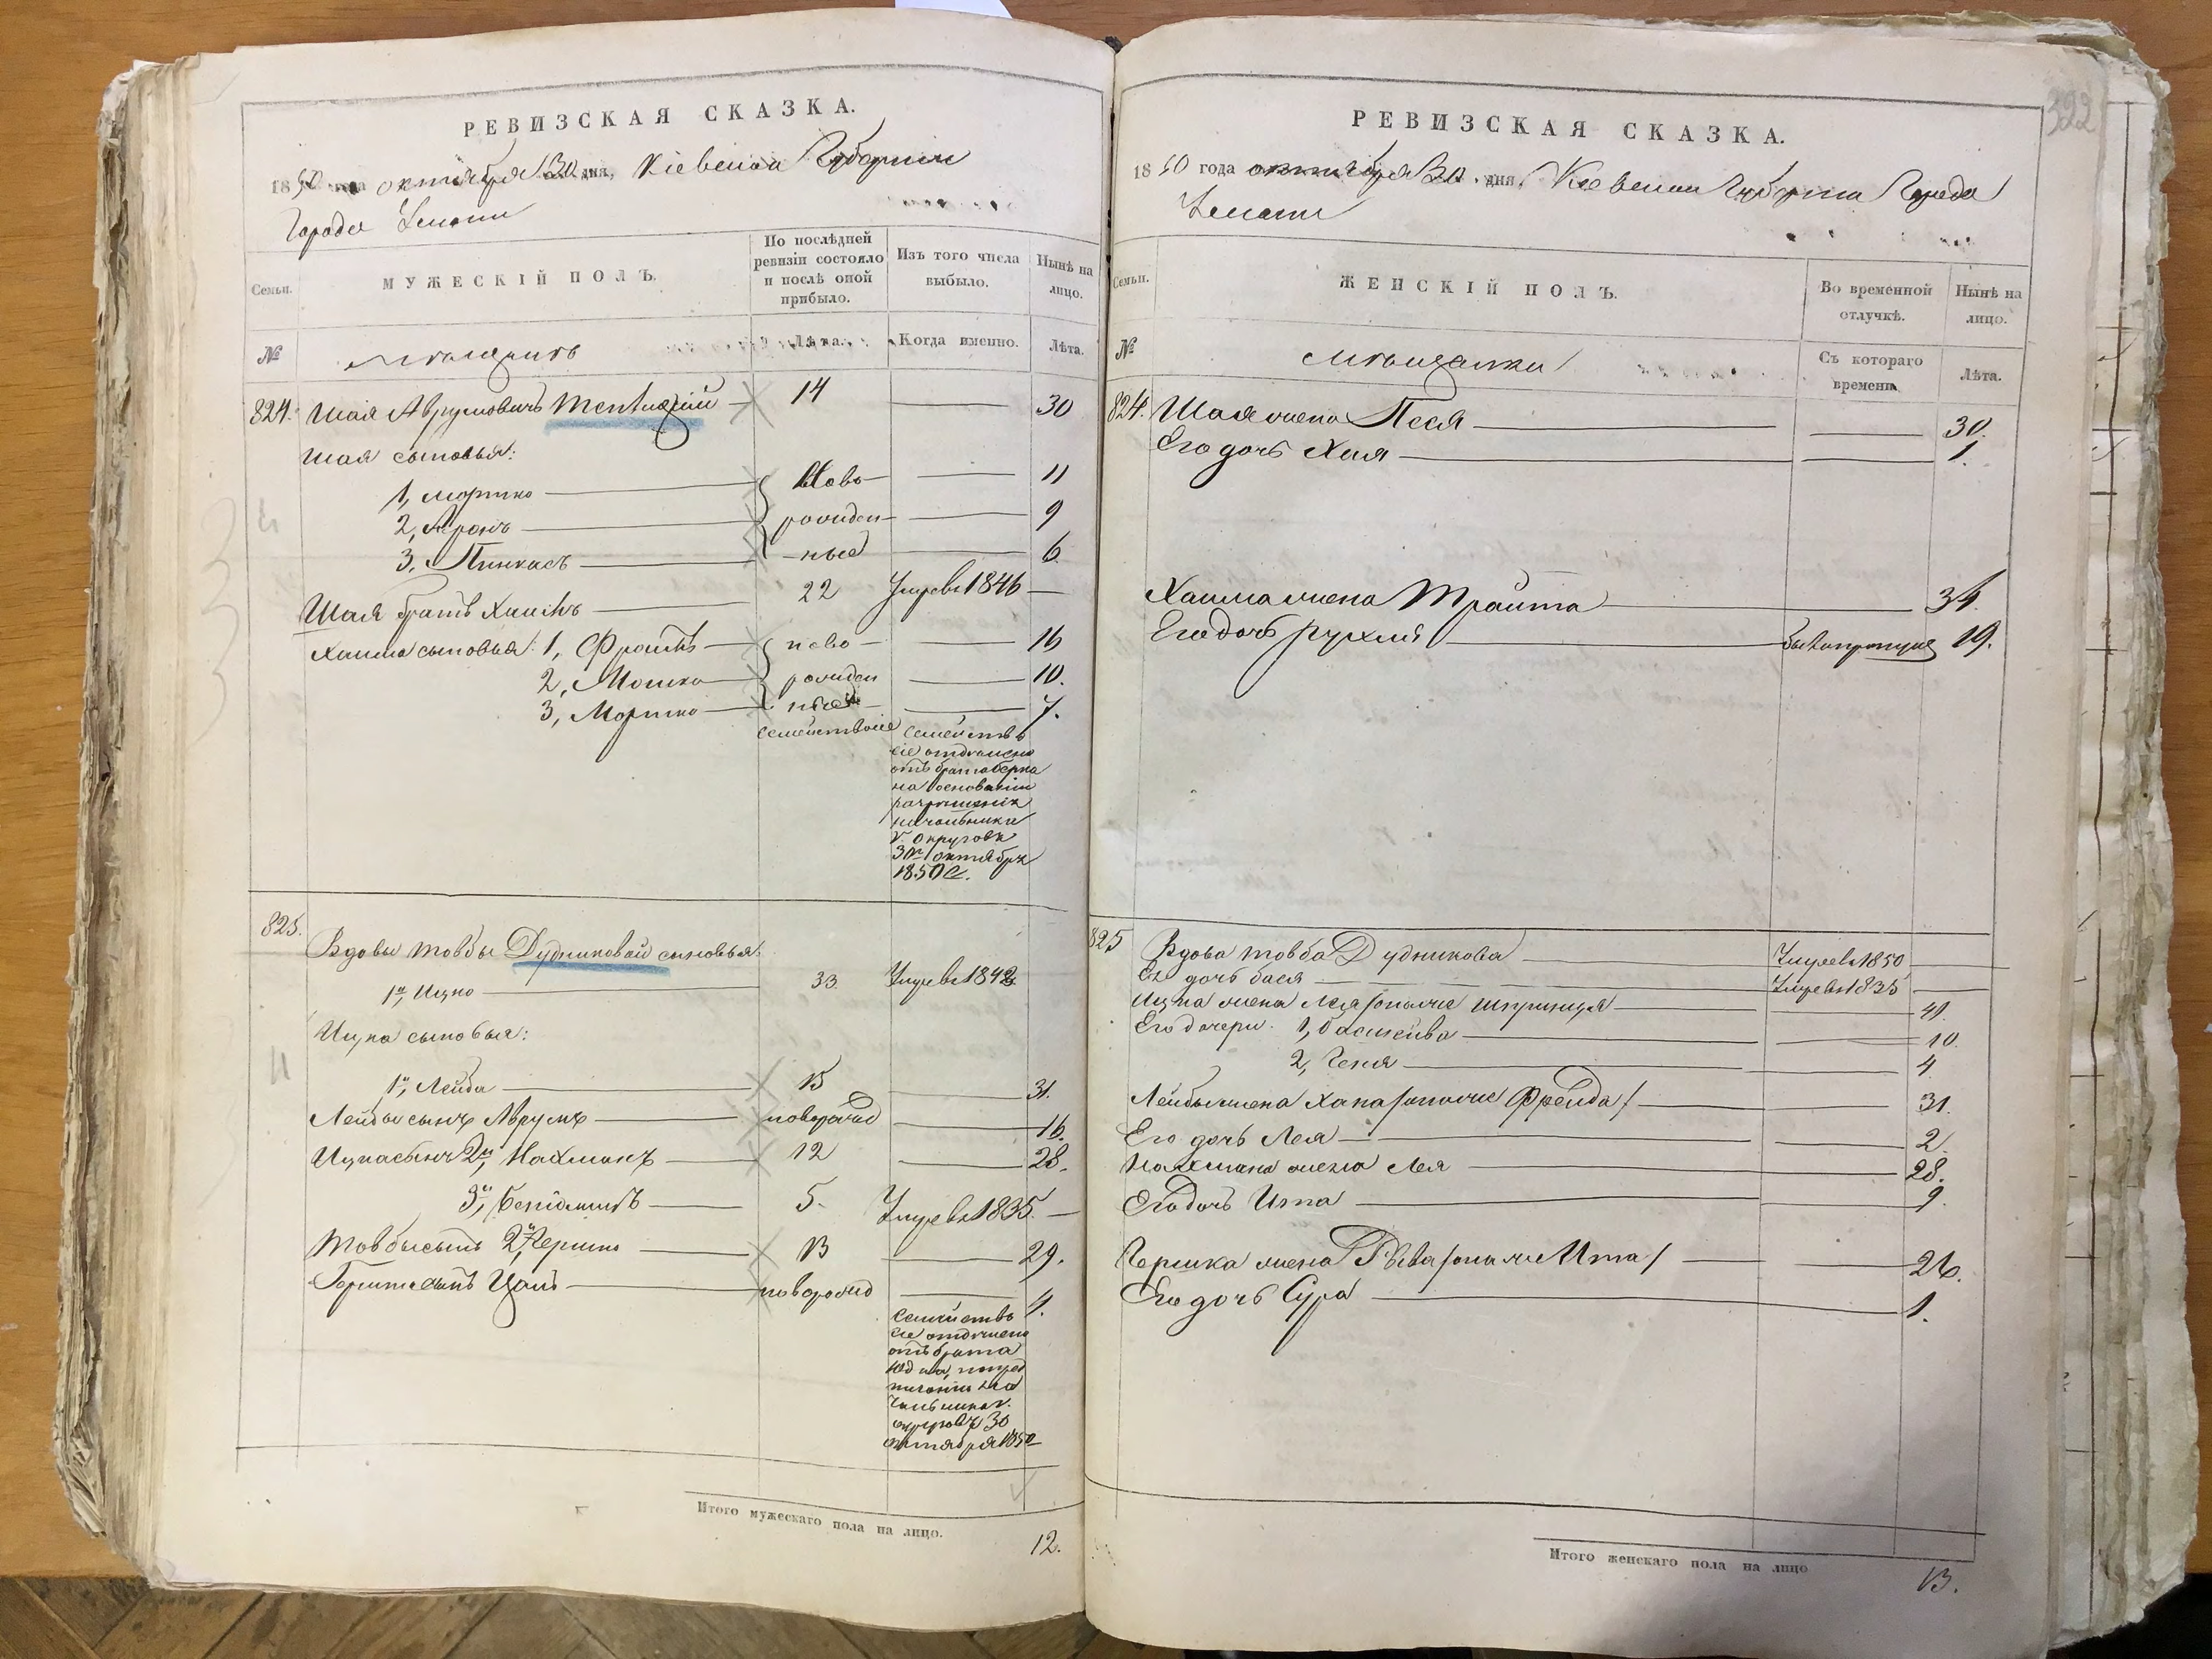 РЕВИЗСКАЯ СКАЗКА.
1850 года октября 30 дня, Кіевской Губерніи
Города Умани
Семьи.
МУЖЕСКІЙ ПОЛЪ.
По послѣдней ревизіи состояло и послѣ оной прибыло.
Изъ того числа выбыло.
Нынѣ на лицо.
№
мѣщанъ
Лѣта.
Когда именно.
Лѣта.
824. Шая Аврумовичъ 14 30
Шая сыновья:
1, Мошко Ново 11
2, Аронъ рожден 9
3, Пинхасъ ные 6
Шая братъ Хаимъ 22 Умре въ 1846
Хаима сыновья: 1, ново 16
2, Мошко рожден 10.
3, Мортко ные 7.
Семейство сіе
Семейство
сіе отдѣлено
отъ брата Берка
на основаніи
разрѣшенія
начальника
V. Округовъ
30 октября
1850 г.
825.
Вдовы Товбы Дудниковой сыновья:
1й, Ицко 33 Умре въ 1842
Ицка сыновья:
1й, Лейба 15 31.
Лейбы сынъ Аврумъ новорожд 16.
Ицка сынъ 2й, Нахманъ 12 28.
3й, Беніоминъ 5. Умре въ 1835.
Товбы сынъ 2й, Гершко 13 29.
Гершка сынъ новорожд 4.
Семейство
сіе отдѣлено
отъ брата
округовъ 30
октября 1850
Итого мужескаго пола на лицо.
12.
392
РЕВИЗСКАЯ СКАЗКА.
1850 года октября 30 дня, Кіевской Губерніи Города
Умани
Семьи.
ЖЕНСКІЙ ПОЛЪ.
Во временной отлучкѣ.
Нынѣ на лицо.
№
мѣщанки
Съ котораго времени
Лѣта.
824. Шая жена Песя 30.
Его дочь Хая 1.
Хаима жена 34.
Его дочь Рухля 19.
825 Вдова Товба Дудникова Умре въ 1850
Ея дочь Бася Умре въ 1835
Ицка жена Леа /онаже Шпринца 41.
Его дочери: 1, Басшейва 10.
2, Геня 4
Лейбы жена Хана /онаже Фрейда/ 31.
Его дочь Лея 2.
Нахмана жена Лея 28.
Его дочь Ита 9.
Гершка жена Рыва /она же Ита/ 26.
Его дочь Сура 1.
Итого женскаго пола на лицо
13.